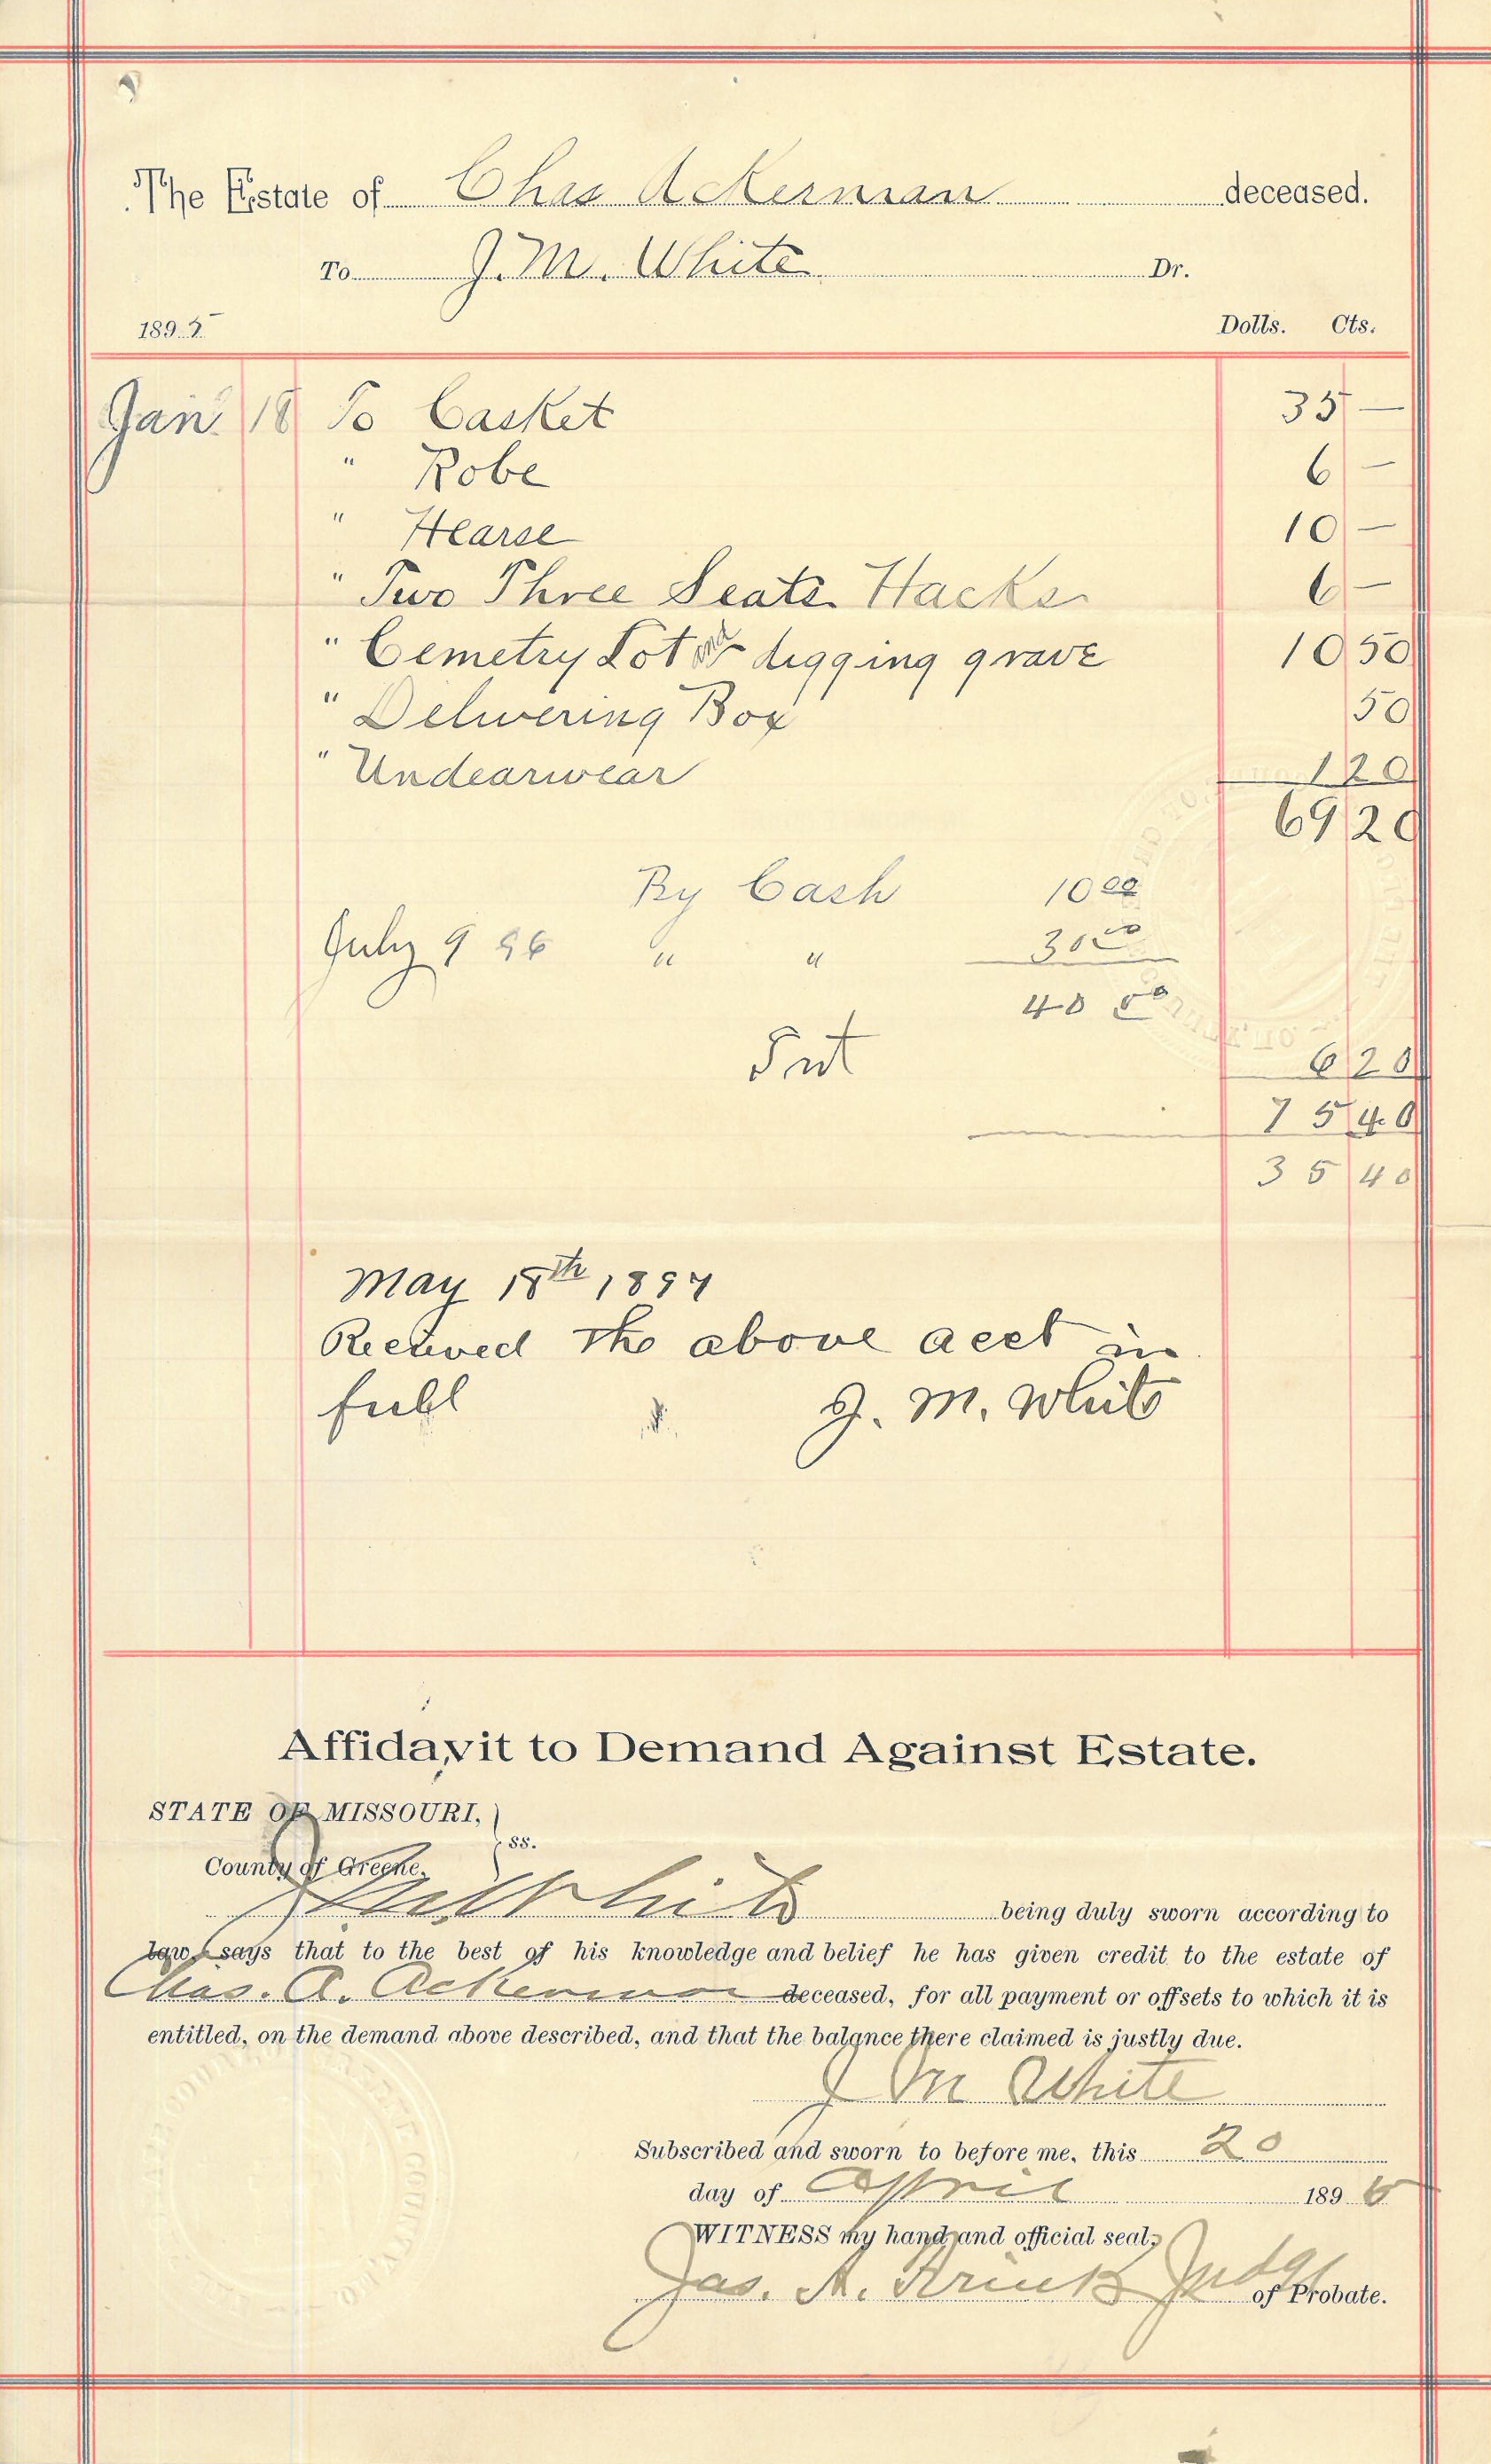 The Estate of Chas Ackerman deceased.
To J. M. White Dr.
1895 Dolls. Cts.
Jan. 18 To Casket 35 —
" Robe 6 —
" Hearse 10 —
" Two Three Seats Hacks 6 —
" Cemetry Lot and digging grave 10 50
" Delivering Box 50
" Undearwear 1 20
69 20
By Cash 10 00
July 9 96 " " 30 00
40 00
Int 6 20
75 40
35 40
May 18th 1897
Recieved The above acct in
full J. M. White
Affidavit to Demand Against Estate.
STATE OF MISSOURI,
County of Greene. } ss.
J M White being duly sworn according to
law, says that to the best of his knowledge and belief he has given credit to the estate of
Chas. A. Ackerman deceased, for all payment or offsets to which it is
entitled, on the demand above described, and that the balance there claimed is justly due.
J M White
Subscribed and sworn to before me, this 20
day of April 1896
WITNESS my hand and official seal,
Jas. A. Judge of Probate.